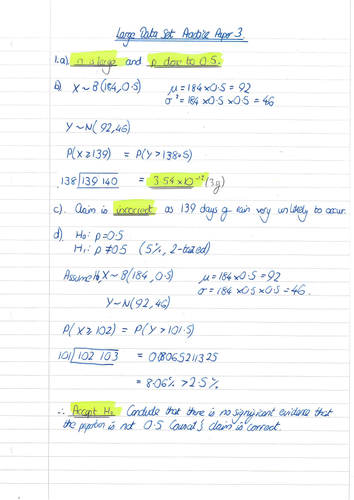 Large Data Set Practice Paper 3.
1.a). n is large and p close to 0.5.
b) X ~ B(184, 0.5) μ = 184 × 0.5 = 92
σ² = 184 × 0.5 × 0.5 = 46
Y ~ N(92, 46)
P(X ≥ 139) = P(Y > 138.5)
138 | 139 140 = 3.54 × 10⁻¹² (3sf)
c). Claim is incorrect as 139 days of rain very unlikely to occur.
d) H₀: p = 0.5
H₁: p ≠ 0.5 (5%, 2-tailed)
Assume H₀, X ~ B(184, 0.5) μ = 184 × 0.5 = 92
σ = 184 × 0.5 × 0.5 = 46.
Y ~ N(92, 46)
P(X ≥ 102) = P(Y > 101.5)
101 | 102 103 = 0.0806521325
= 8.06% > 2.5%
∴ Accept H₀. Conclude that there is no significant evidence that
the proportion is not 0.5 claim is correct.